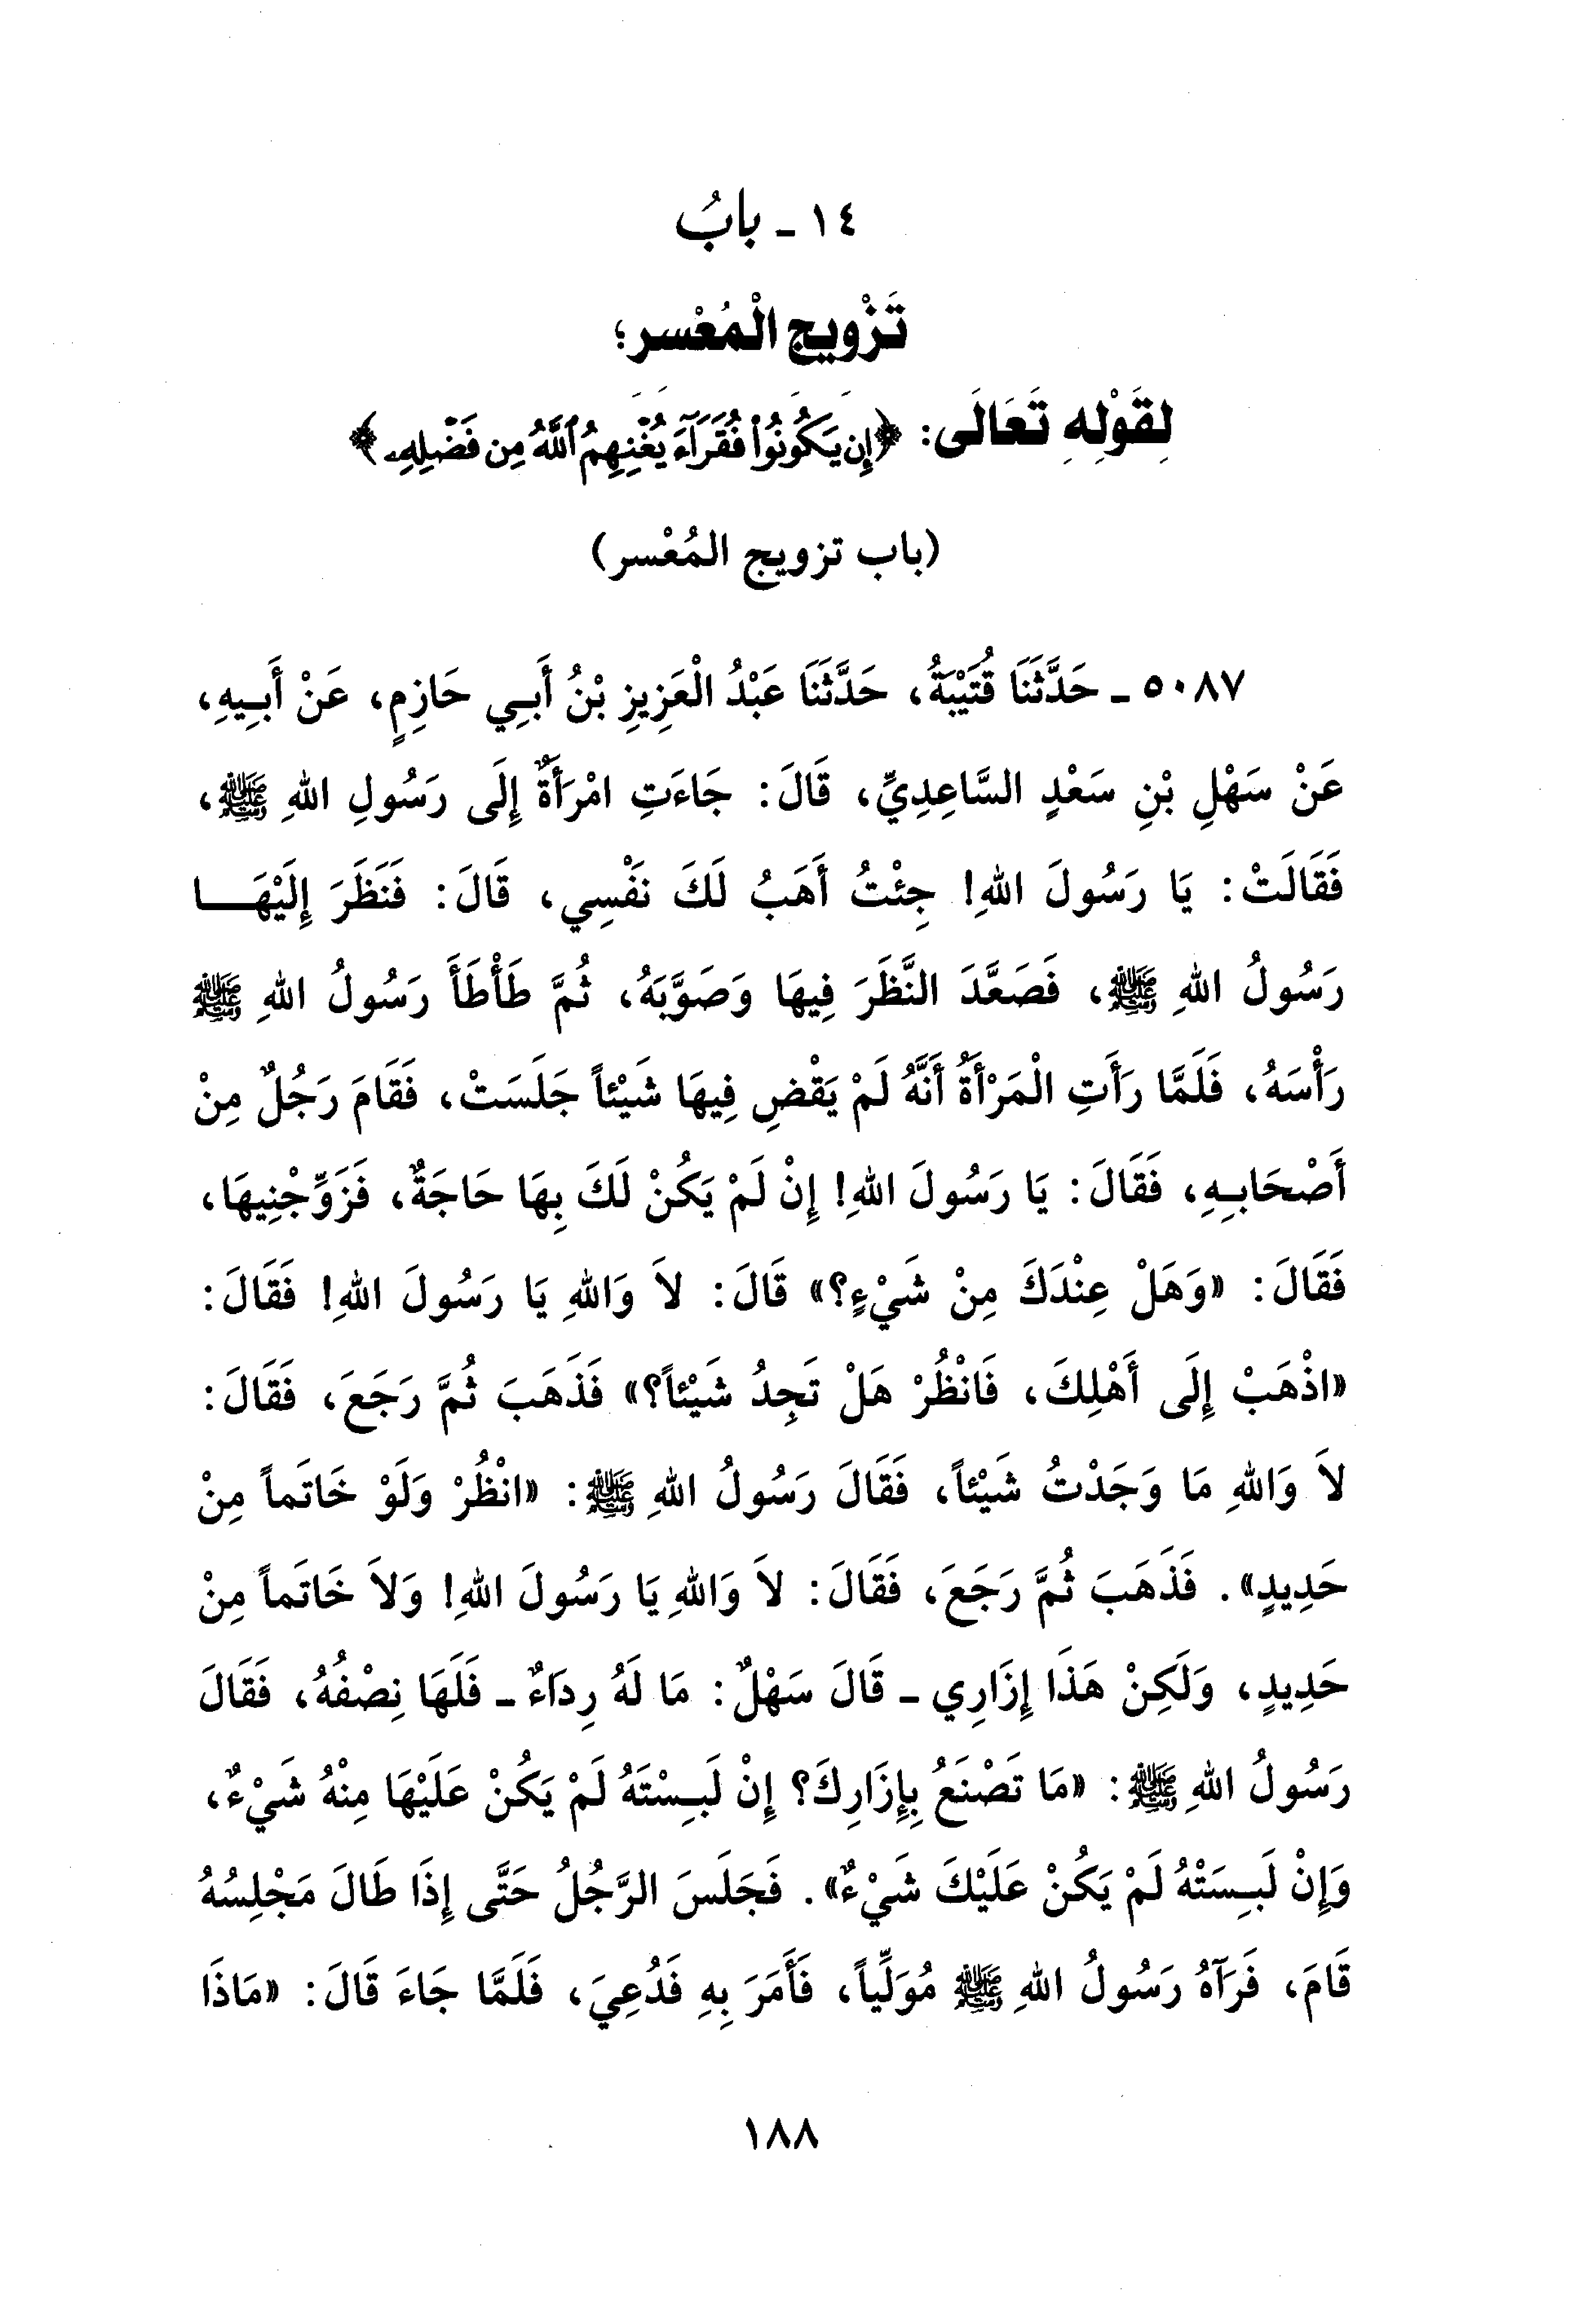 ١٤ - بابُ
تَزْويج الْمُعْسر؛
لِقَوْلِهِ تَعَالَى: ﴿إِن يَكُونُوا۟ فُقَرَآءَ يُغْنِهِمُ ٱللَّهُ مِن فَضْلِهِۦ﴾
(باب تزويج المُعْسر)
٥٠٨٧ - حَدَّثَنَا قُتَيْبَةُ، حَدَّثَنَا عَبْدُ الْعَزِيزِ بْنُ أَبِي حَازِمٍ، عَنْ أَبِيهِ،
عَنْ سَهْلِ بْنِ سَعْدٍ السَّاعِدِيِّ، قَالَ: جَاءَتِ امْرَأَةٌ إِلَى رَسُولِ اللهِ ﷺ،
فَقَالَتْ: يَا رَسُولَ اللهِ! جِئْتُ أَهَبُ لَكَ نَفْسِي، قَالَ: فَنَظَرَ إِلَيْهَا
رَسُولُ اللهِ ﷺ، فَصَعَّدَ النَّظَرَ فِيهَا وَصَوَّبَهُ، ثُمَّ طَأْطَأَ رَسُولُ اللهِ ﷺ
رَأْسَهُ، فَلَمَّا رَأَتِ الْمَرْأَةُ أَنَّهُ لَمْ يَقْضِ فِيهَا شَيْئاً جَلَسَتْ، فَقَامَ رَجُلٌ مِنْ
أَصْحَابِهِ، فَقَالَ: يَا رَسُولَ اللهِ! إِنْ لَمْ يَكُنْ لَكَ بِهَا حَاجَةٌ، فَزَوِّجْنِيهَا،
فَقَالَ: «وَهَلْ عِنْدَكَ مِنْ شَيْءٍ؟» قَالَ: لاَ وَاللهِ يَا رَسُولَ اللهِ! فَقَالَ:
«اذْهَبْ إِلَى أَهْلِكَ، فَانْظُرْ هَلْ تَجِدُ شَيْئاً؟» فَذَهَبَ ثُمَّ رَجَعَ، فَقَالَ:
لاَ وَاللهِ مَا وَجَدْتُ شَيْئاً، فَقَالَ رَسُولُ اللهِ ﷺ: «انْظُرْ وَلَوْ خَاتَماً مِنْ
حَدِيدٍ». فَذَهَبَ ثُمَّ رَجَعَ، فَقَالَ: لاَ وَاللهِ يَا رَسُولَ اللهِ! وَلاَ خَاتَماً مِنْ
حَدِيدٍ، وَلَكِنْ هَذَا إِزَارِي - قَالَ سَهْلٌ: مَا لَهُ رِدَاءٌ - فَلَهَا نِصْفُهُ، فَقَالَ
رَسُولُ اللهِ ﷺ: «مَا تَصْنَعُ بِإِزَارِكَ؟ إِنْ لَبِسْتَهُ لَمْ يَكُنْ عَلَيْهَا مِنْهُ شَيْءٌ،
وَإِنْ لَبِسَتْهُ لَمْ يَكُنْ عَلَيْكَ شَيْءٌ». فَجَلَسَ الرَّجُلُ حَتَّى إِذَا طَالَ مَجْلِسُهُ
قَامَ، فَرَآهُ رَسُولُ اللهِ ﷺ مُوَلِّياً، فَأَمَرَ بِهِ فَدُعِيَ، فَلَمَّا جَاءَ قَالَ: «مَاذَا
١٨٨